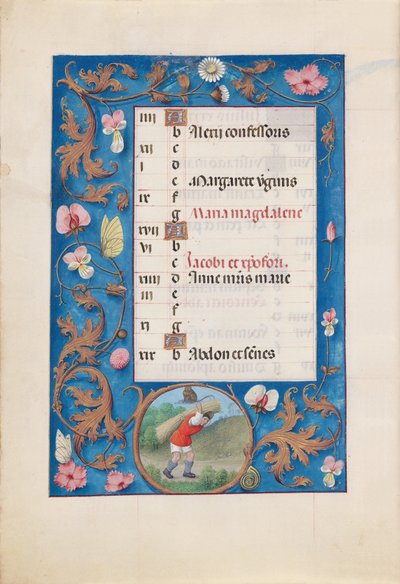 iiij A
xij b Alexij confessoris
c
j d
e Margarete vginis
ix f
g Maria magdalene
xvij A
vj b
c Jacobi et xpofori.
xiiij d Anne mris marie
iij e
f
xj g
A
xix b Abdon et senes